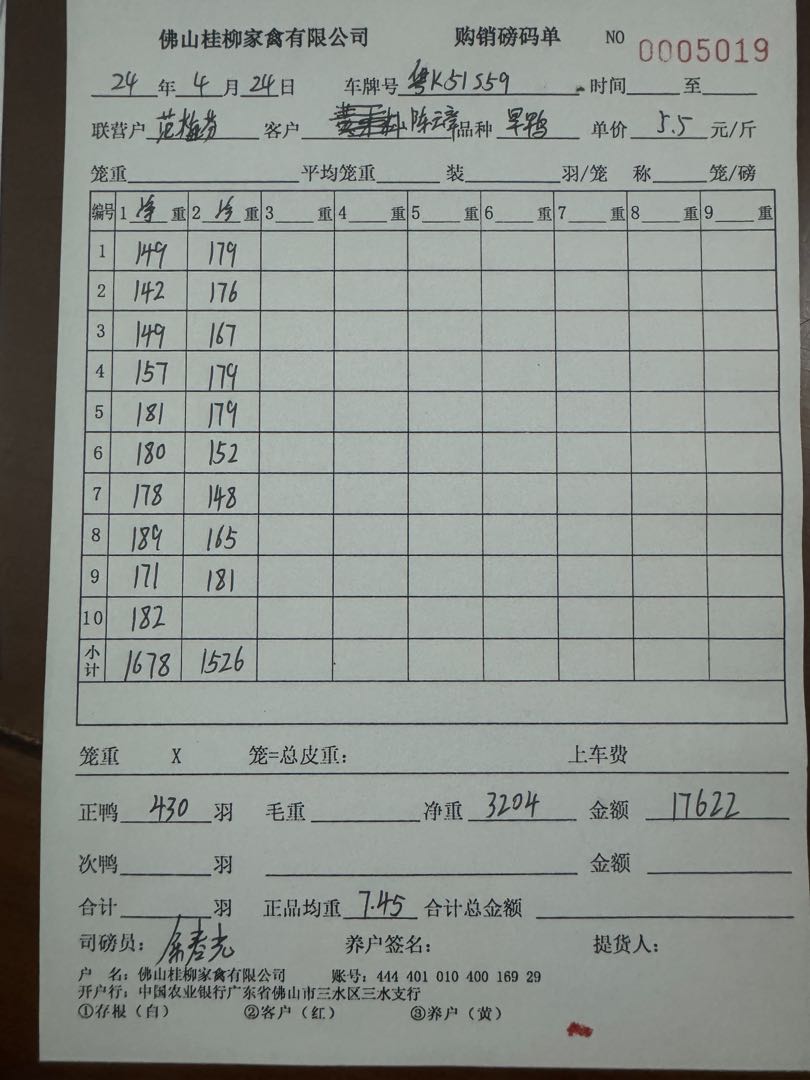 佛山桂柳家禽有限公司 购销磅码单 NO 0005019
24 年 4 月 24 日 车牌号 粤K51S59 时间 至
联营户 范梅芬 客户 陈云章 品种 旱鸭 单价 5.5 元/斤
笼重 平均笼重 装 羽/笼 称 笼/磅
编号 1 净 重 2 净 重 3 重 4 重 5 重 6 重 7 重 8 重 9 重
1 149 179
2 142 176
3 149 167
4 157 179
5 181 179
6 180 152
7 178 148
8 189 165
9 171 181
10 182
小计 1678 1526
笼重 X 笼=总皮重: 上车费
正鸭 430 羽 毛重 净重 3204 金额 17622
次鸭 羽 金额
合计 羽 正品均重 7.45 合计总金额
司磅员: 养户签名: 提货人:
户 名: 佛山桂柳家禽有限公司 账号: 444 401 010 400 169 29
开户行: 中国农业银行广东省佛山市三水区三水支行
①存根（白） ②客户（红） ③养户（黄）